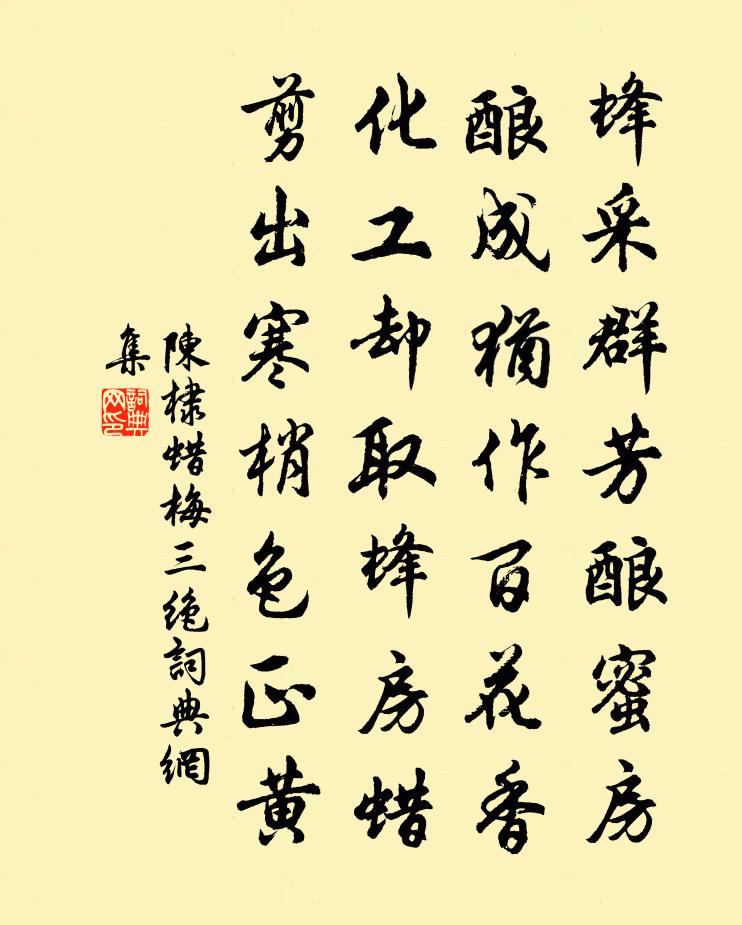 蜂采群芳酿蜜房
酿成犹作百花香
化工却取蜂房蜡
剪出寒梢色正黄
陳棣蜡梅三绝詞典網
集
詞典
网印